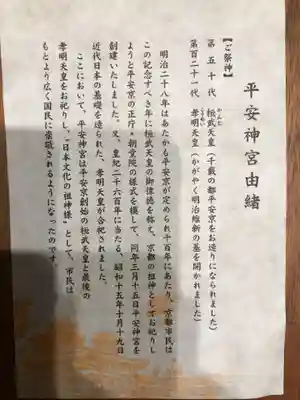 平安神宮由緒
【ご祭神】
第五十代 桓武天皇(千載の都平安京をお造りになられました)
第百二十一代 孝明天皇(かがやく明治維新の基を開かれました)
明治二十八年はあたかも平安京が定められ千百年にあたり、京都市民は
この記念すべき年に桓武天皇の御偉徳を称え、京都の祖神としてお祀りし
ようと平安京の正庁・朝堂院の様式を模して、同年三月十五日平安神宮を
創建いたしました。又、皇紀二千六百年に当たる、昭和十五年十月十九日
近代日本の基礎を造られた、孝明天皇が合祀されました。
ここにおいて、平安神宮は平安京創始の桓武天皇と最後の
孝明天皇をお祀りし、“日本文化の祖神様”として、市民は
もとより広く国民に崇敬されるようになったのです。